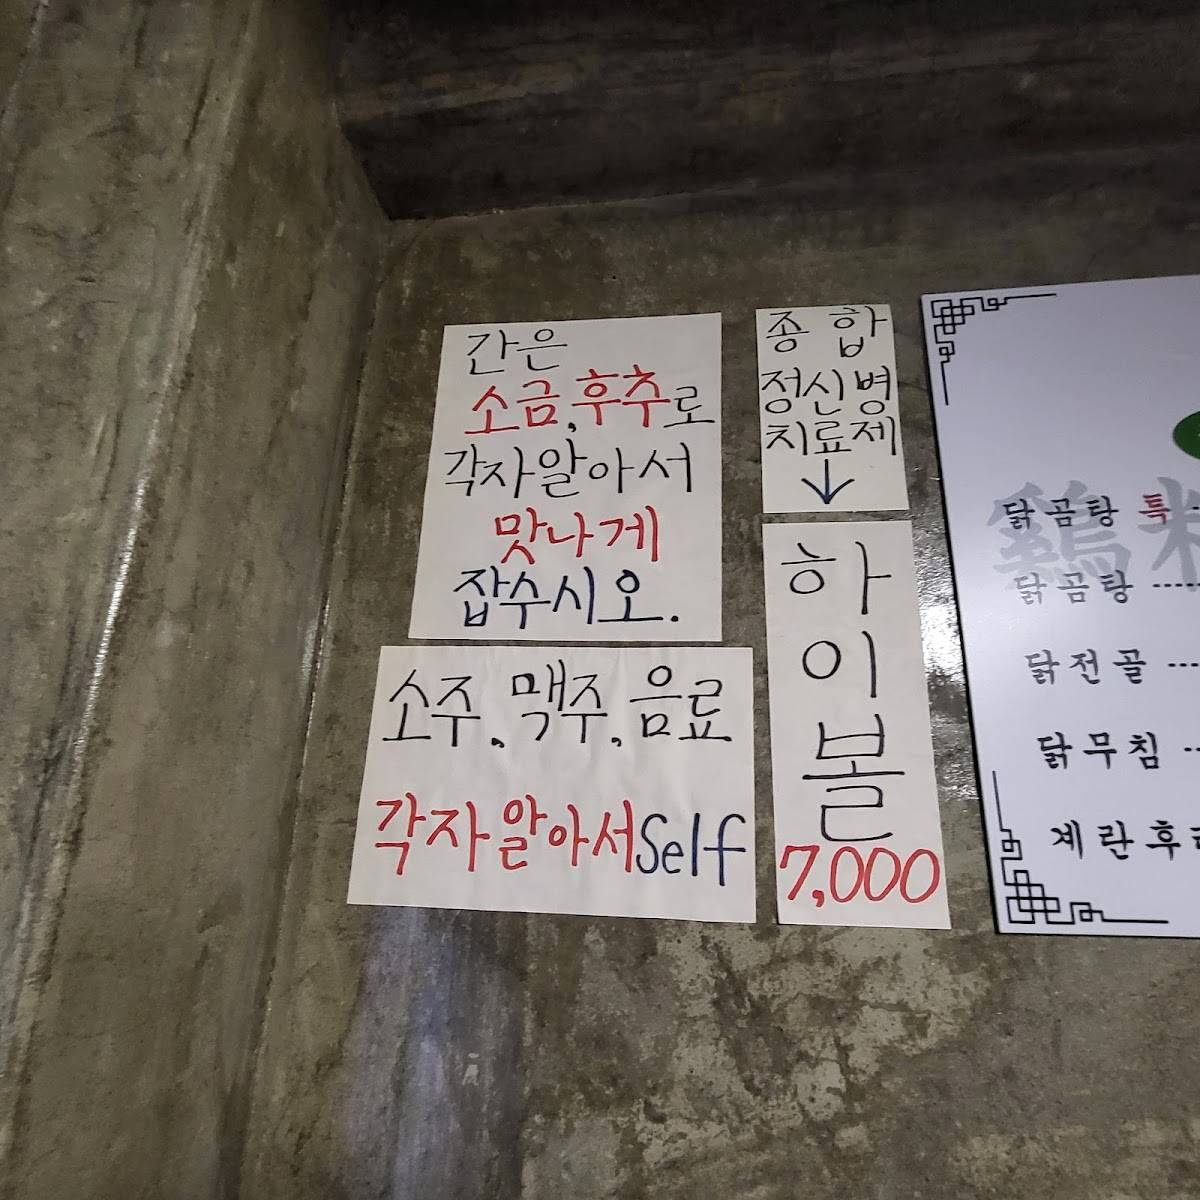 간은
소금,후추로
각자알아서
맛나게
잡수시오.
소주,맥주,음료
각자 알아서Self
종합
정신병
치료제
↓
하
이
볼
7,000
닭곰탕 특
닭곰탕
닭전골
닭무침
계란후
鷄